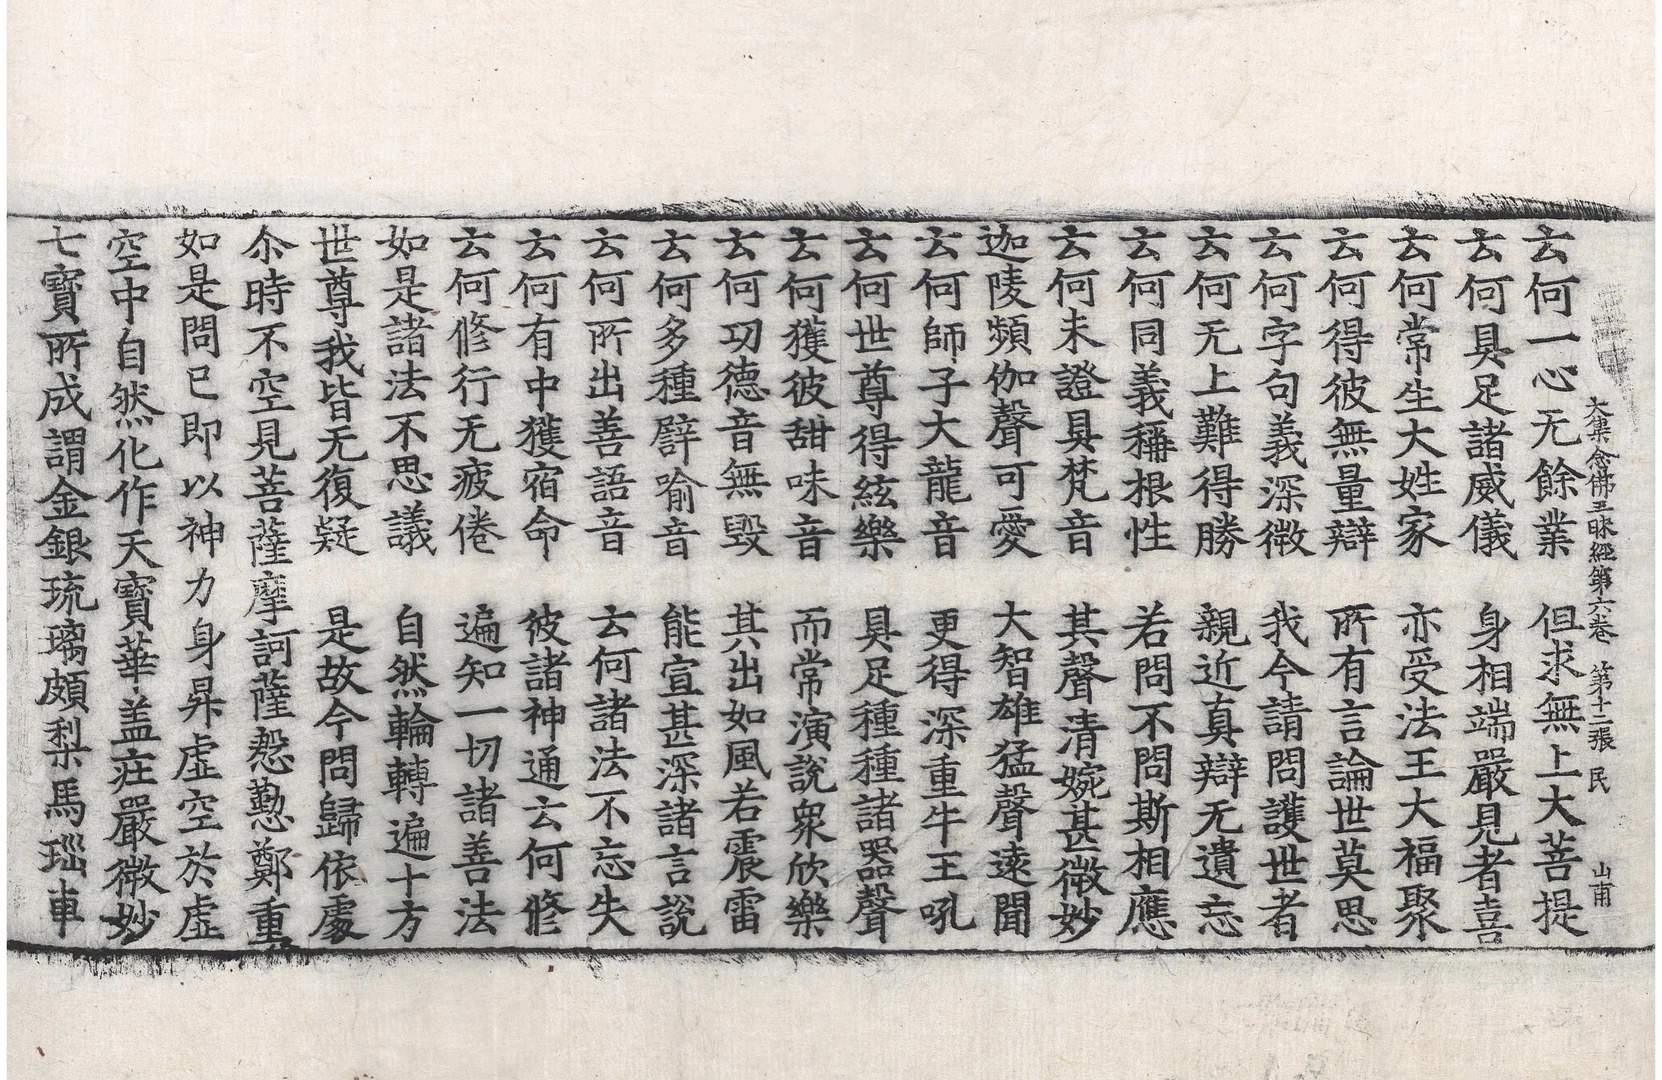 大集念佛三昧經第六卷　第十二張　民　山甫
云何一心无餘業　但求無上大菩提
云何具足諸威儀　身相端嚴見者喜
云何常生大姓家　亦受法王大福聚
云何得彼無量辯　所有言論世莫思
云何字句義深微　我今請問護世者
云何无上難得勝　親近真辯无遺忘
云何同義稱根性　若問不問斯相應
云何未證具梵音　其聲清婉甚微妙
迦陵頻伽聲可愛　大智雄猛聲遠聞
云何師子大龍音　更得深重牛王吼
云何世尊得絃樂　具足種種諸器聲
云何獲彼甜味音　而常演說衆欣樂
云何功德音無毀　其出如風若震雷
云何多種譬喻音　能宣甚深諸言說
云何所出善語音　云何諸法不忘失
云何有中獲宿命　彼諸神通云何修
云何修行无疲倦　遍知一切諸善法
如是諸法不思議　自然輪轉遍十方
世尊我皆无復疑　是故今問歸依處
尒時不空見菩薩摩訶薩慇懃鄭重
如是問已即以神力身昇虛空於虛
空中自然化作天寶華盖莊嚴微妙
七寶所成謂金銀琉璃頗梨馬瑙車